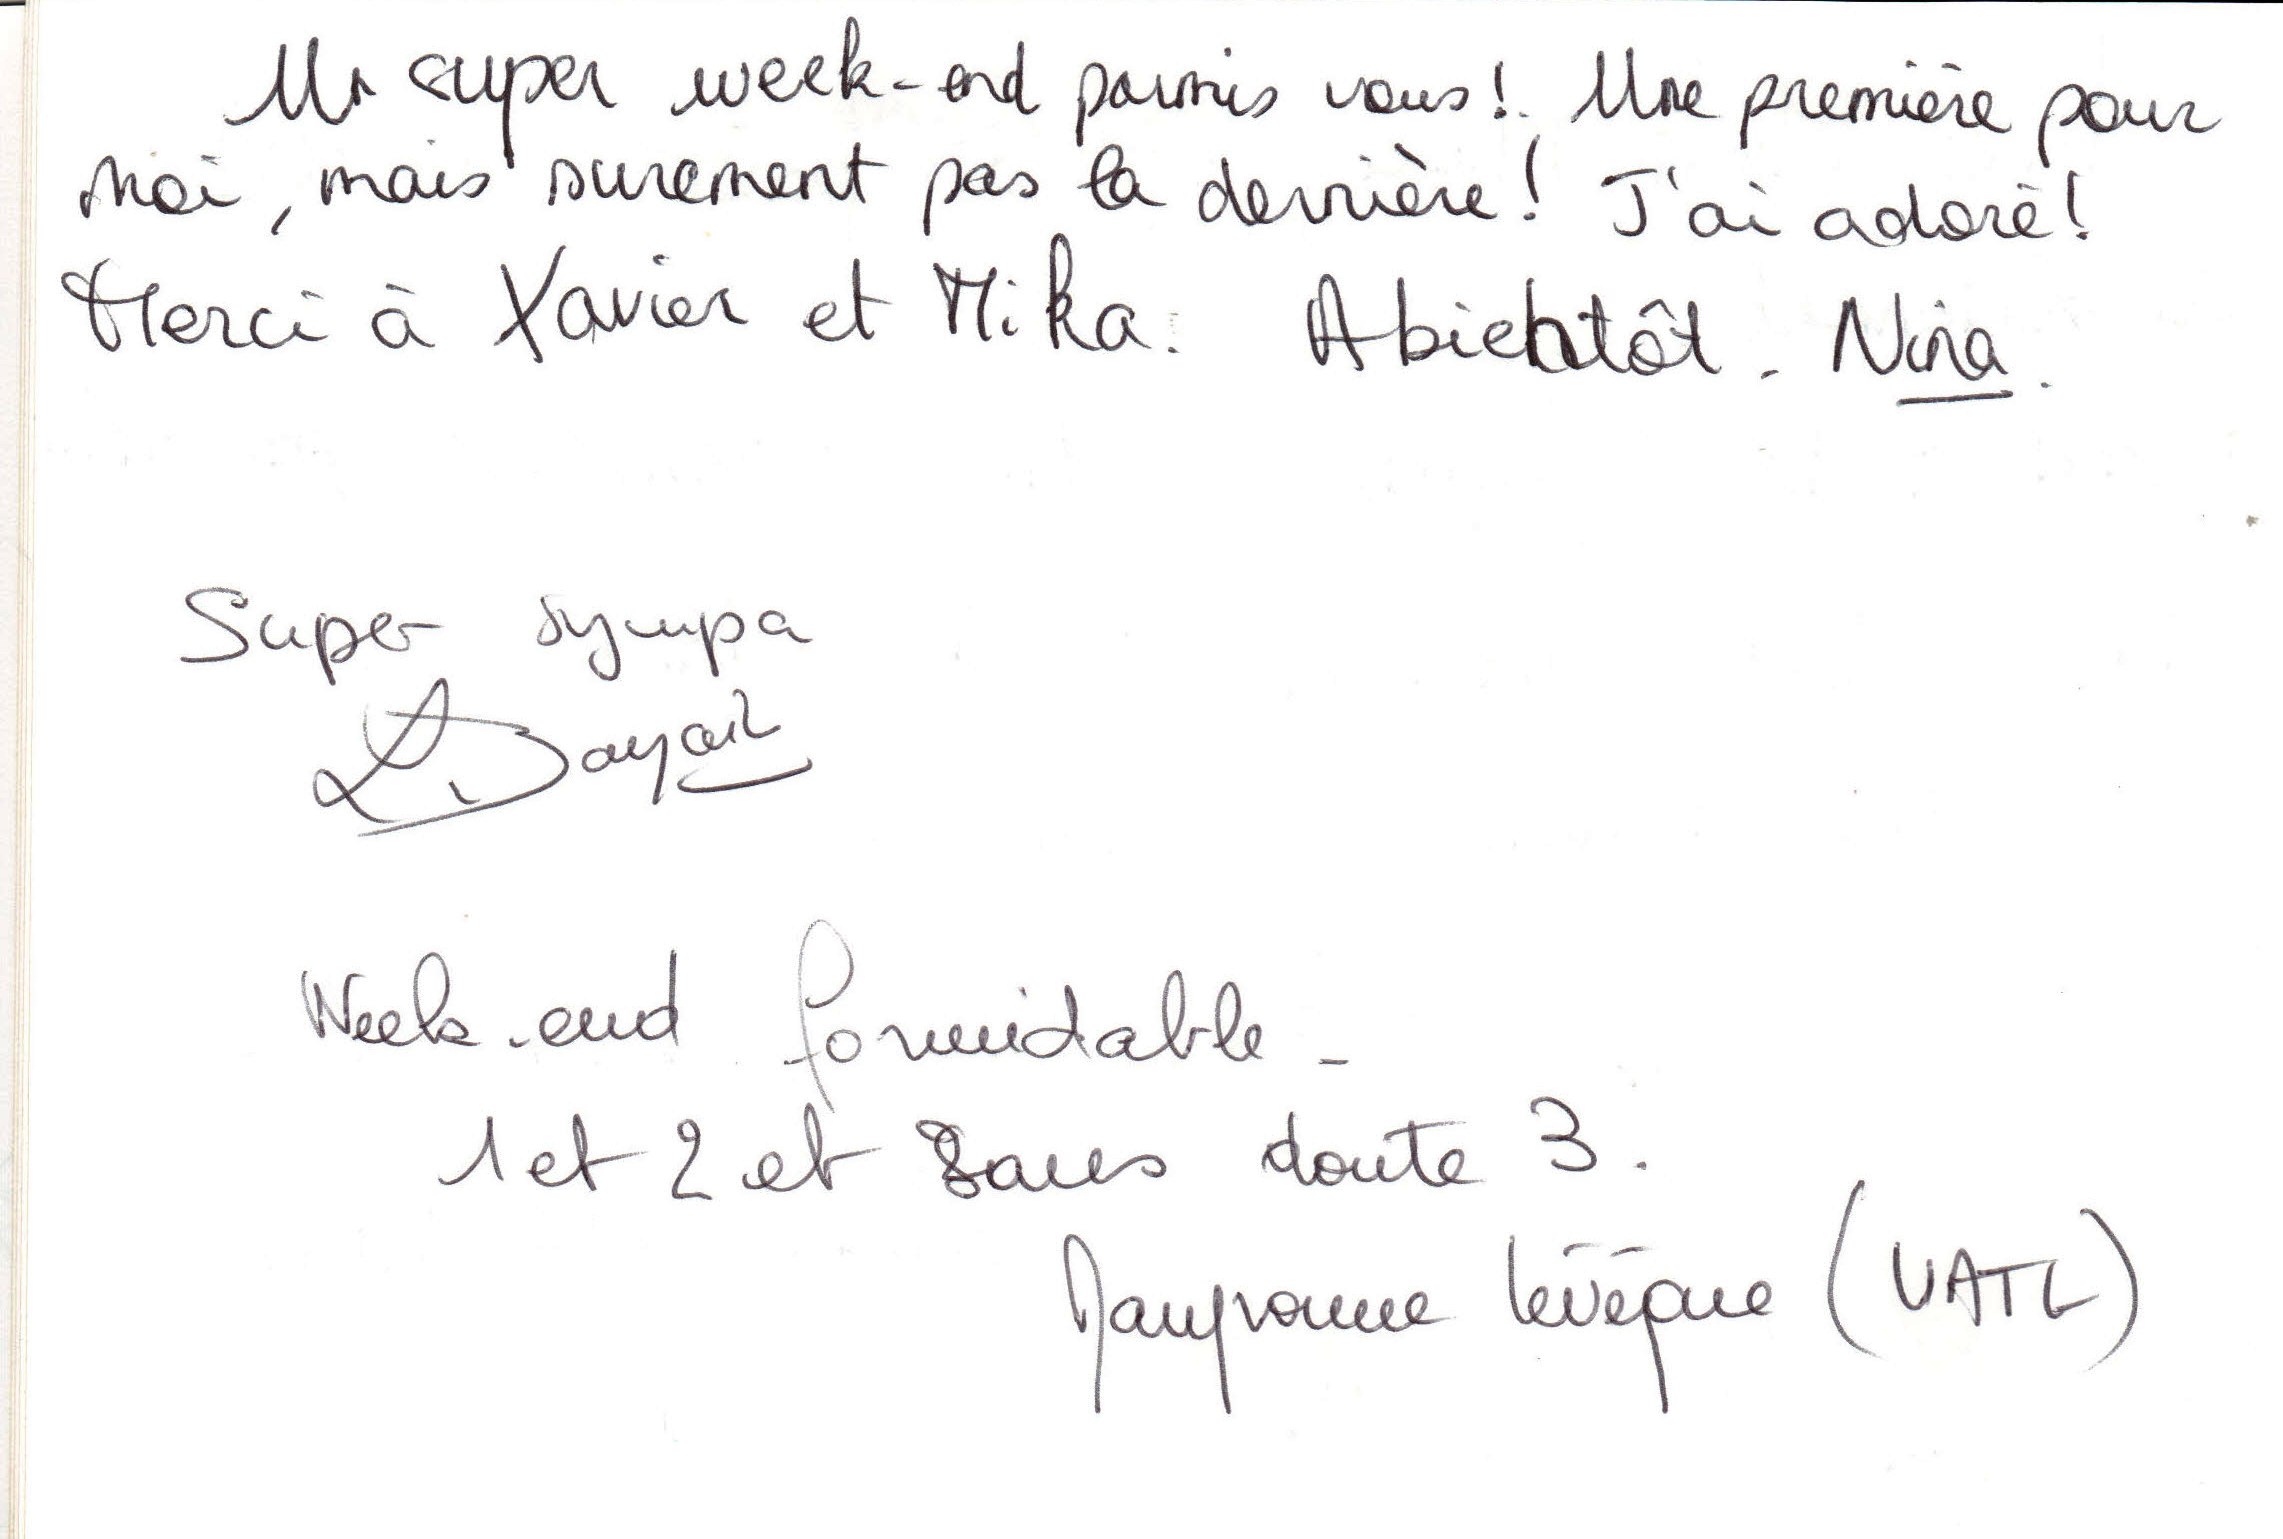 Un super week-end parmis vous! Une première pour
moi, mais surement pas la dernière! J'ai adoré!
Merci à Xavier et Mika. A bientôt. Nina.
Super sympa
Week-end formidable -
1 et 2 et sans doute 3.
Lévêque (VATL)